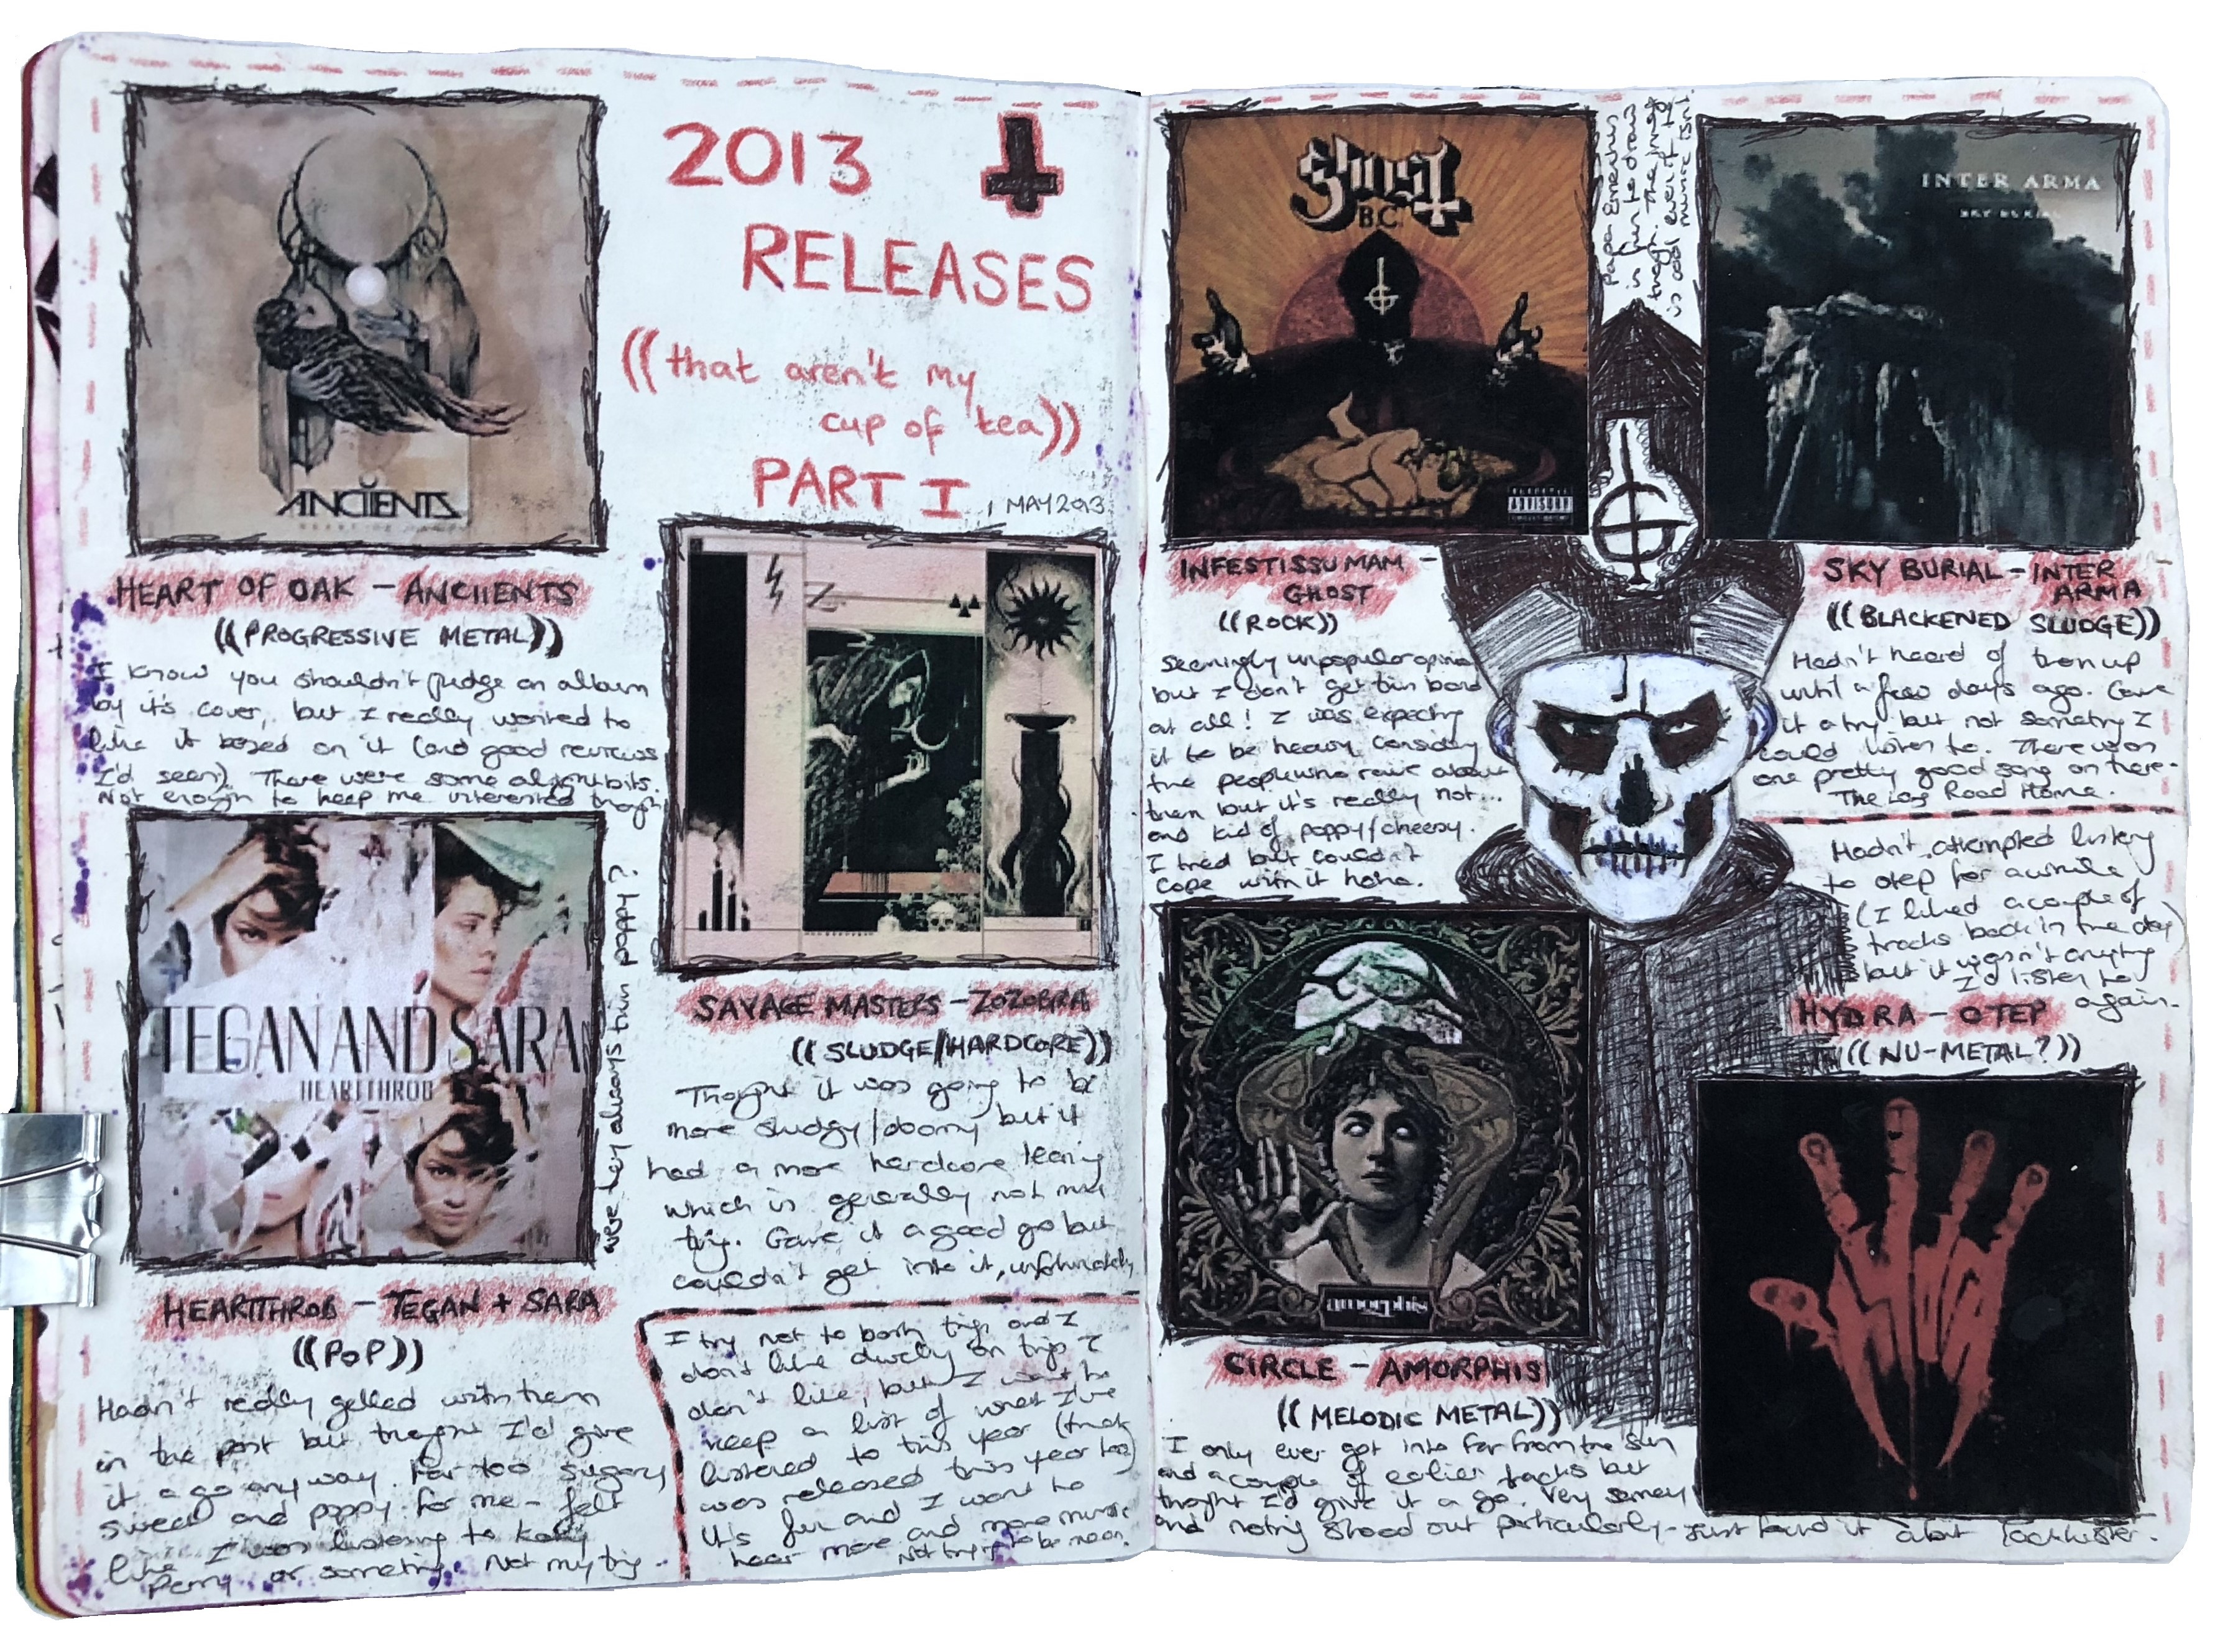 2013
RELEASES
((that aren't my
cup of tea))
PART I
1 MAY 2013
ANCIIENTS
HEART OF OAK - ANCIIENTS
((PROGRESSIVE METAL))
I know you shouldn't judge an album
by it's cover, but I really wanted to
like it based on it (and good reviews
I'd seen). There were some alright bits.
Not enough to keep me interested though
TEGAN AND SARA
HEARTTHROB
were they always this poppy?
HEARTTHROB - TEGAN + SARA
((POP))
Hadn't really gelled with them
in the past but thought I'd give
it a go anyway. Far too sugary
sweet and poppy for me - felt
like I was listening to Katy
Perry or something. Not my thing.
SAVAGE MASTERS - ZOZOBRA
((SLUDGE/HARDCORE))
Thought it was going to be
more sludgy/doomy but it
had a more hardcore leaning
which is generally not my
thing. Gave it a good go but
couldn't get into it, unfortunately
I try not to bash things and I
don't like dwelling on things I
don't like, but I want to
keep a list of what I've
listened to this year (that
was released this year too)
It's fun and I want to
hear more and more music
Not trying to be mean.
Ghost
B.C.
ADVISORY
Papa Emeritus
is fun to draw
though. The image
is cool even if the
music isn't.
INFESTISSUMAM -
GHOST
((ROCK))
Seemingly unpopular opinion
but I don't get this band
at all! I was expecting
it to be heavy, considering
the people who rave about
them but it's really not...
and kind of poppy/cheesy.
I tried but couldn't
cope with it haha.
INTER ARMA
SKY BURIAL
SKY BURIAL - INTER
ARMA
((BLACKENED SLUDGE))
Hadn't heard of them up
until a few days ago. Gave
it a try but not something I
could listen to. There was
one pretty good song on there -
The Long Road Home.
Hadn't attempted listening
to Otep for awhile
(I liked a couple of
tracks back in the day)
but it wasn't anything
I'd listen to
again.
HYDRA - OTEP
((NU-METAL?))
HYDRA
amorphis
CIRCLE - AMORPHIS
((MELODIC METAL))
I only ever got into Far From the Sun
and a couple of earlier tracks but
thought I'd give it a go. Very samey
and nothing stood out particularly - just found it a bit lacklustre.